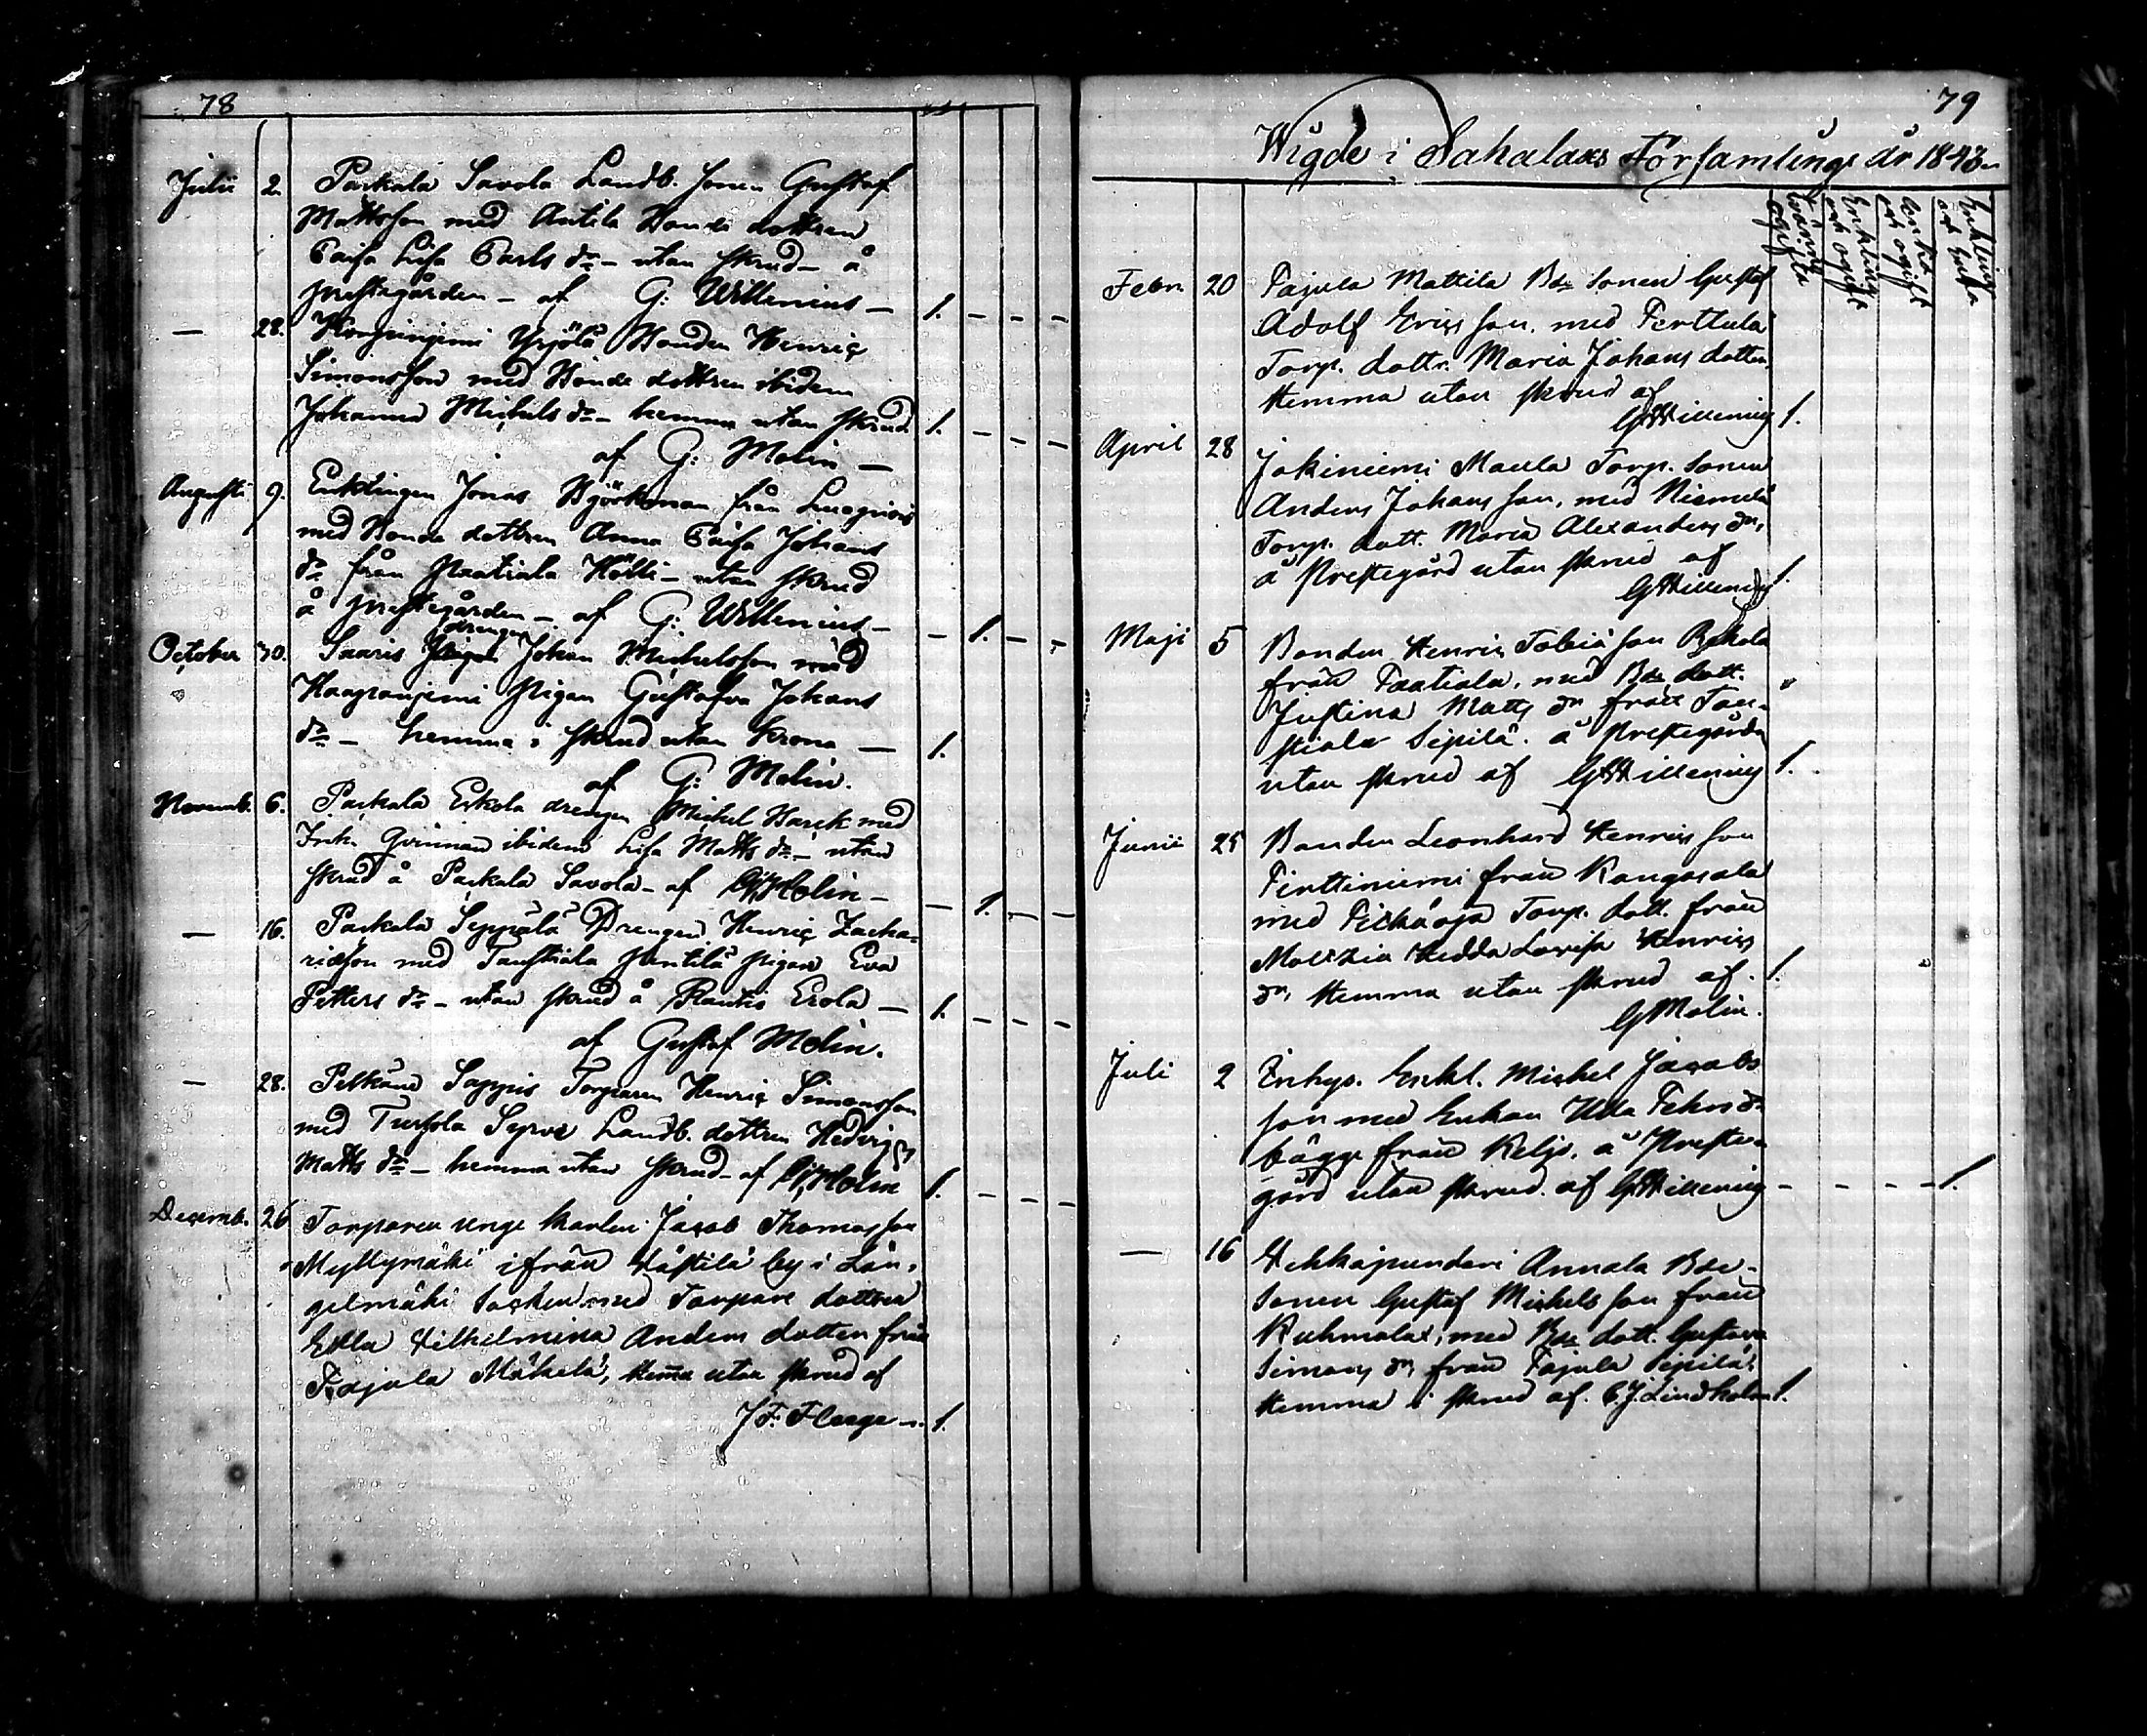 78
Julii 2. Paskala Savola Landb. Sonen Gustaf
Mattsson med Antila Bonde dottren
Caisa Lisa Carls dr – utan skrud – å
prestagården – af G: Willenius – 1. – – –
— 28. Yrjölä Bonden Henric
Simonsson med Bonde dottren ibidem
Johanna Michels dr – hemma utan skrud 1. – – –
af G: Molin –
Augusti 9. Enklingen Jonas Björkman från
med Bonde dottren Anna Caisa Johans
dr från Raatiala Kölli – utan skrud
å prestegården – af G: Willenius – – 1. – –
drengen
October 30. Saaris Johan Michelsson med
Haapaniemi Pigan Gustafva Johans
dr – hemma i skrud utan Krona — 1.
af G: Molin.
Novemb. 6. Paskala Eskola drengen Michel Barck med
Inh. Qvinnan ibidem Lisa Matts dr – utan
skrud å Paskala Savola – af G. Molin – – 1. – –
— 16. Paskala Seppälä Drengen Henric Zacha-
riæson med Taustiala Pentilä pigan Eva
Petters dr – utan skrud å Rautio Erola — 1. – – –
af Gustaf Molin.
— 28. Pelkäne Sappis Torparen Henric Simonsson
med Tursola Syrve Landb. dottren Hedvig
Matts dr – hemma utan skrud – af G. Molin 1. – – –
Decemb. 26 Torparen unge karlen Jacob Thomasson
Myllymäki ifrån by i Län-
gelmäki Socken med Torpare dottren
Ebba Vilhelmina Anders dotter från
Pajula Mäkelä, hema utan skrud af
J. F. 1.
79
Wigde i Sahalaks Församling år 1843
Tvänne ogifta
Enkling och ogift
Enka och ogift
Enkling och Enka
Febr. 20 Pajula Mattila Bde Sonen Gustaf
Adolf Ericsson, med Perttula
Torp. dottr. Maria Johans dotter,
Hemma utan skrud af
G Willenius 1.
April 28 Jokiniemi Maula Torp. Sonen
Anders Johansson, med Niemelä
Torp. dott. Maria Alexanders dr,
å Prestegård utan skrud af
G Willenius 1.
Maji 5 Bonden Henric Tobiasson
från Pratiala, med Bde dott.
Justina Matts dr från Tau-
stiala Sipilä. å Prestegården
utan skrud af G Willenius 1.
Junii 25 Bonden Leonhard Henricsson
Pirttiniemi från Kangasala
med Pitkäoja Torp. dott. från
Moltzia Hedda Lovisa Henrics
dr, Hemma utan skrud af. 1.
G Molin.
Juli 2 Inhys. Enkl. Michel Jacobs
son med Enkan Ulla
bägge från Keljo. å Preste-
gård utan skrud af G Willenius – – – – 1.
— 16 Vehkapunderi Annala Bde-
Sonen Gustaf Michelsson från
Kuhmalax, med Bde dott. Gustava
Simons dr, från Pajula Sipilä.
Hemma i skrud af. C. J. Lindholm 1.